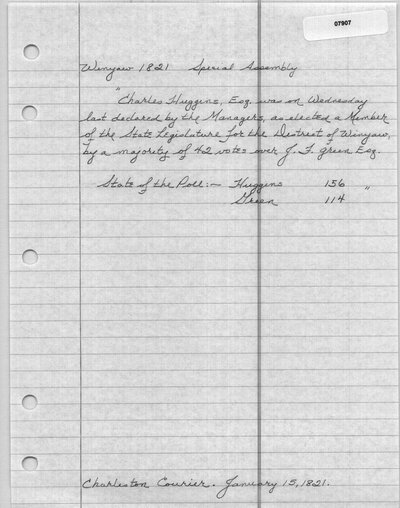 07907
Winyaw 1821 Special Assembly
"Charles Huggins, Esq. was on Wednesday
last declared by the Managers, as elected a Member
of the State Legislature for the District of Winyaw,
by a majority of 42 votes over J. F. Green Esq.
State of the Poll:— Huggins 156 "
Green 114
Charleston Courier. January 15, 1821.